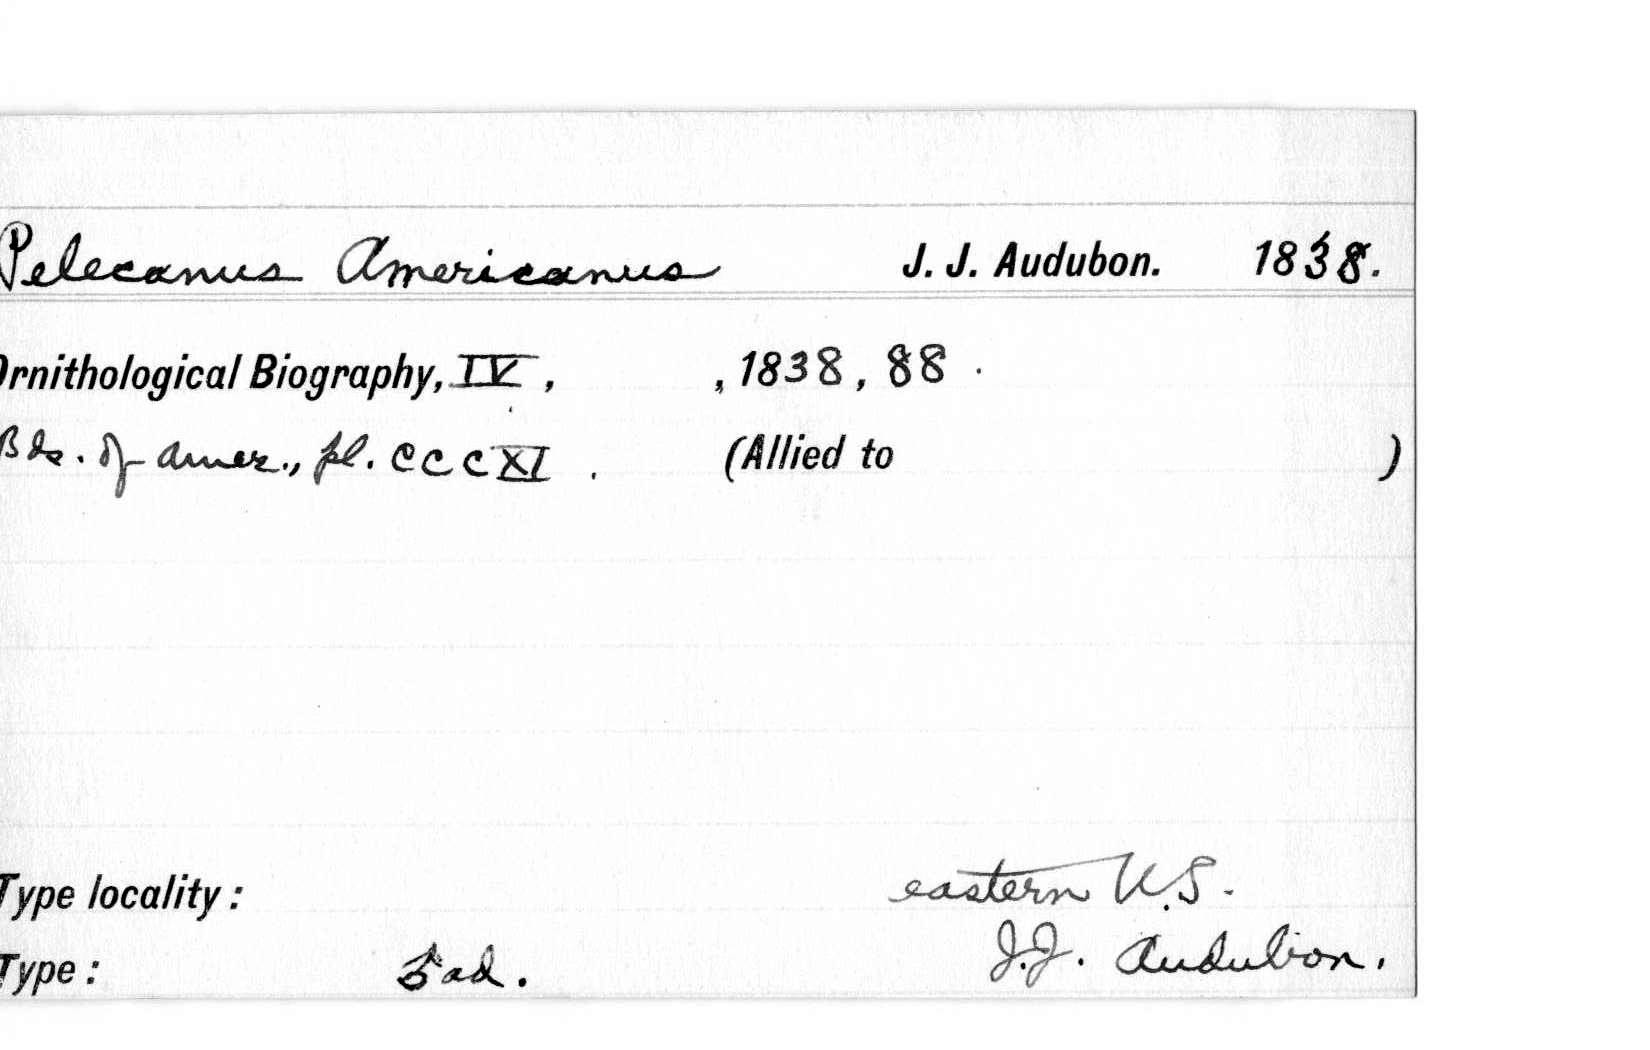 Pelecanus Americanus J. J. Audubon. 1838.
Ornithological Biography, IV, , 1838, 88.
Bds. of Amer., pl. CCCXI. (Allied to )
Type locality: eastern U.S.
Type: ad. J.J. Audubon.